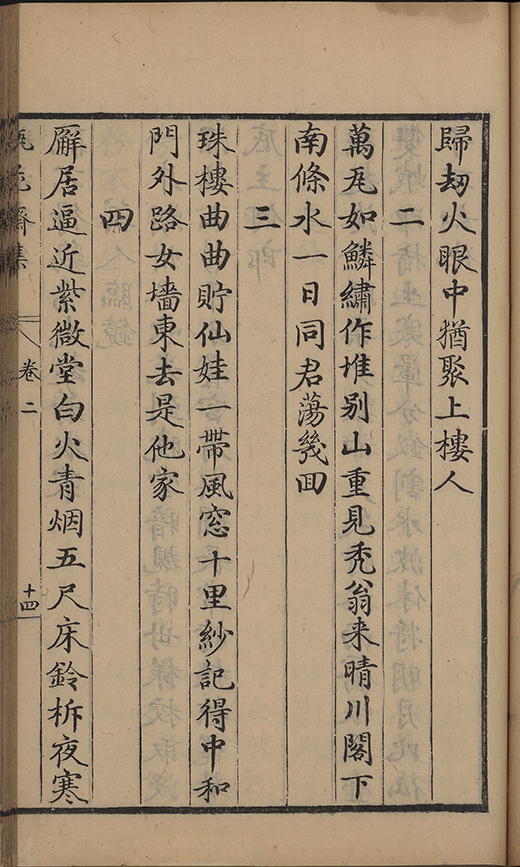 歸刼火眼中猶聚上樓人
二
萬瓦如鱗繡作堆别山重見秃翁来晴川閣下
南條水一日同君蕩幾回
三
珠樓曲曲貯仙娃一帶風窓十里紗記得中和
門外路女墻東去是他家
四
廨居逼近紫微堂白火青烟五尺床鈴柝夜寒
齋集
卷二
十四